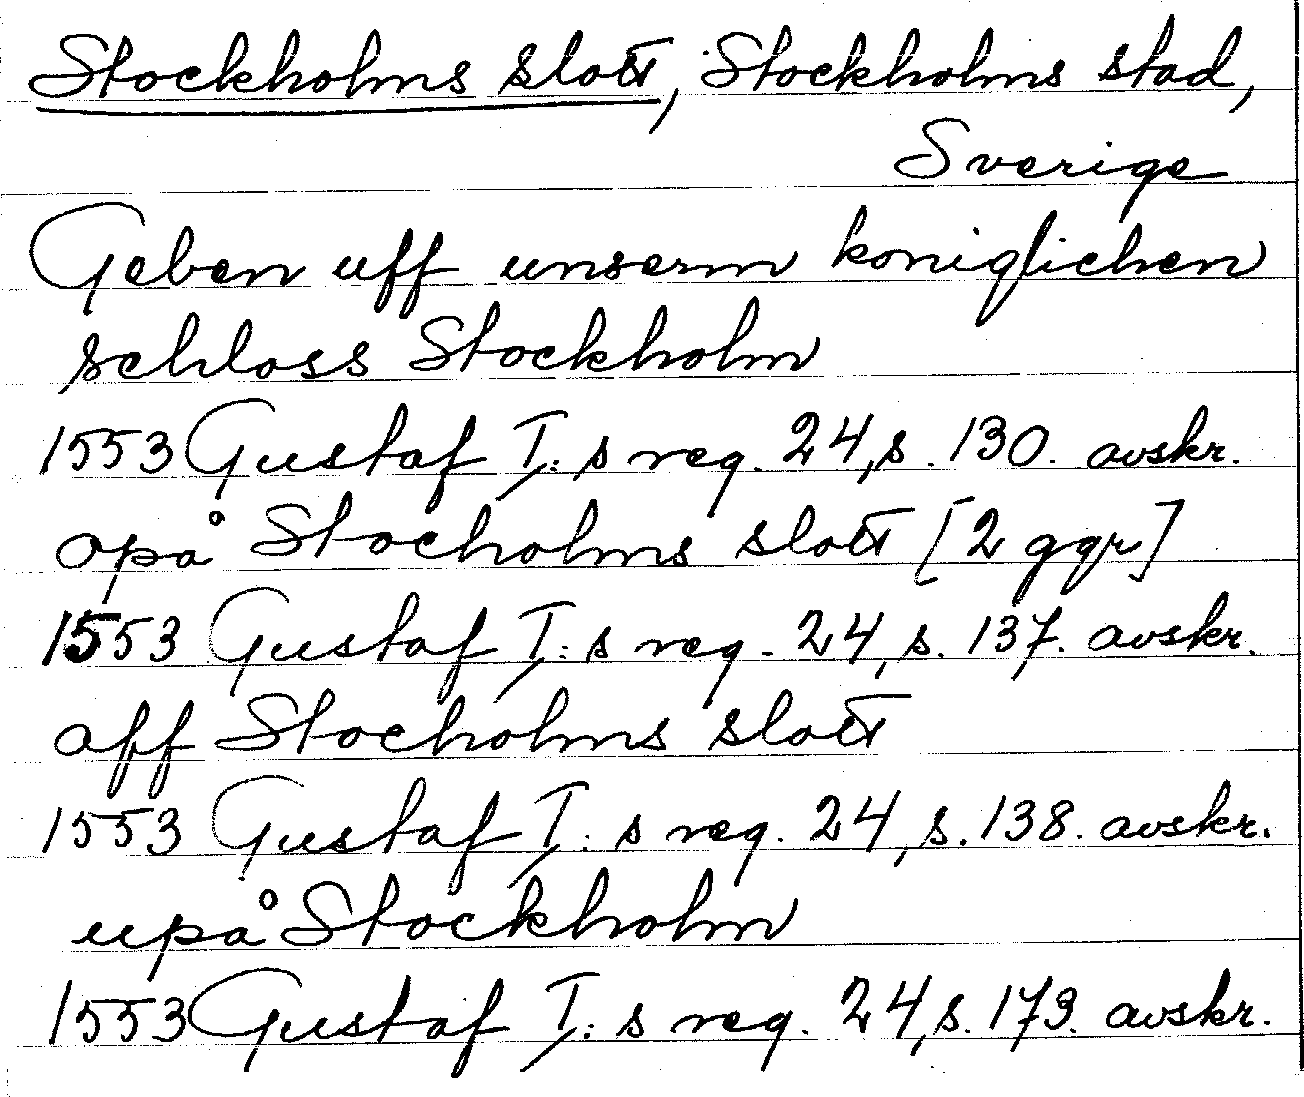 Stockholms slott, Stockholms stad,
Sverige
Geben uff unserm koniglichen
schloss Stockholm
1553 Gustaf I:s reg. 24, s. 130. avskr.
opå Stocholms slott [2 ggr]
1553 Gustaf I:s reg. 24, s. 137. avskr.
aff Stocholms slott
1553 Gustaf I:s reg. 24, s. 138. avskr.
upå Stockholm
1553 Gustaf I:s reg. 24, s. 173. avskr.